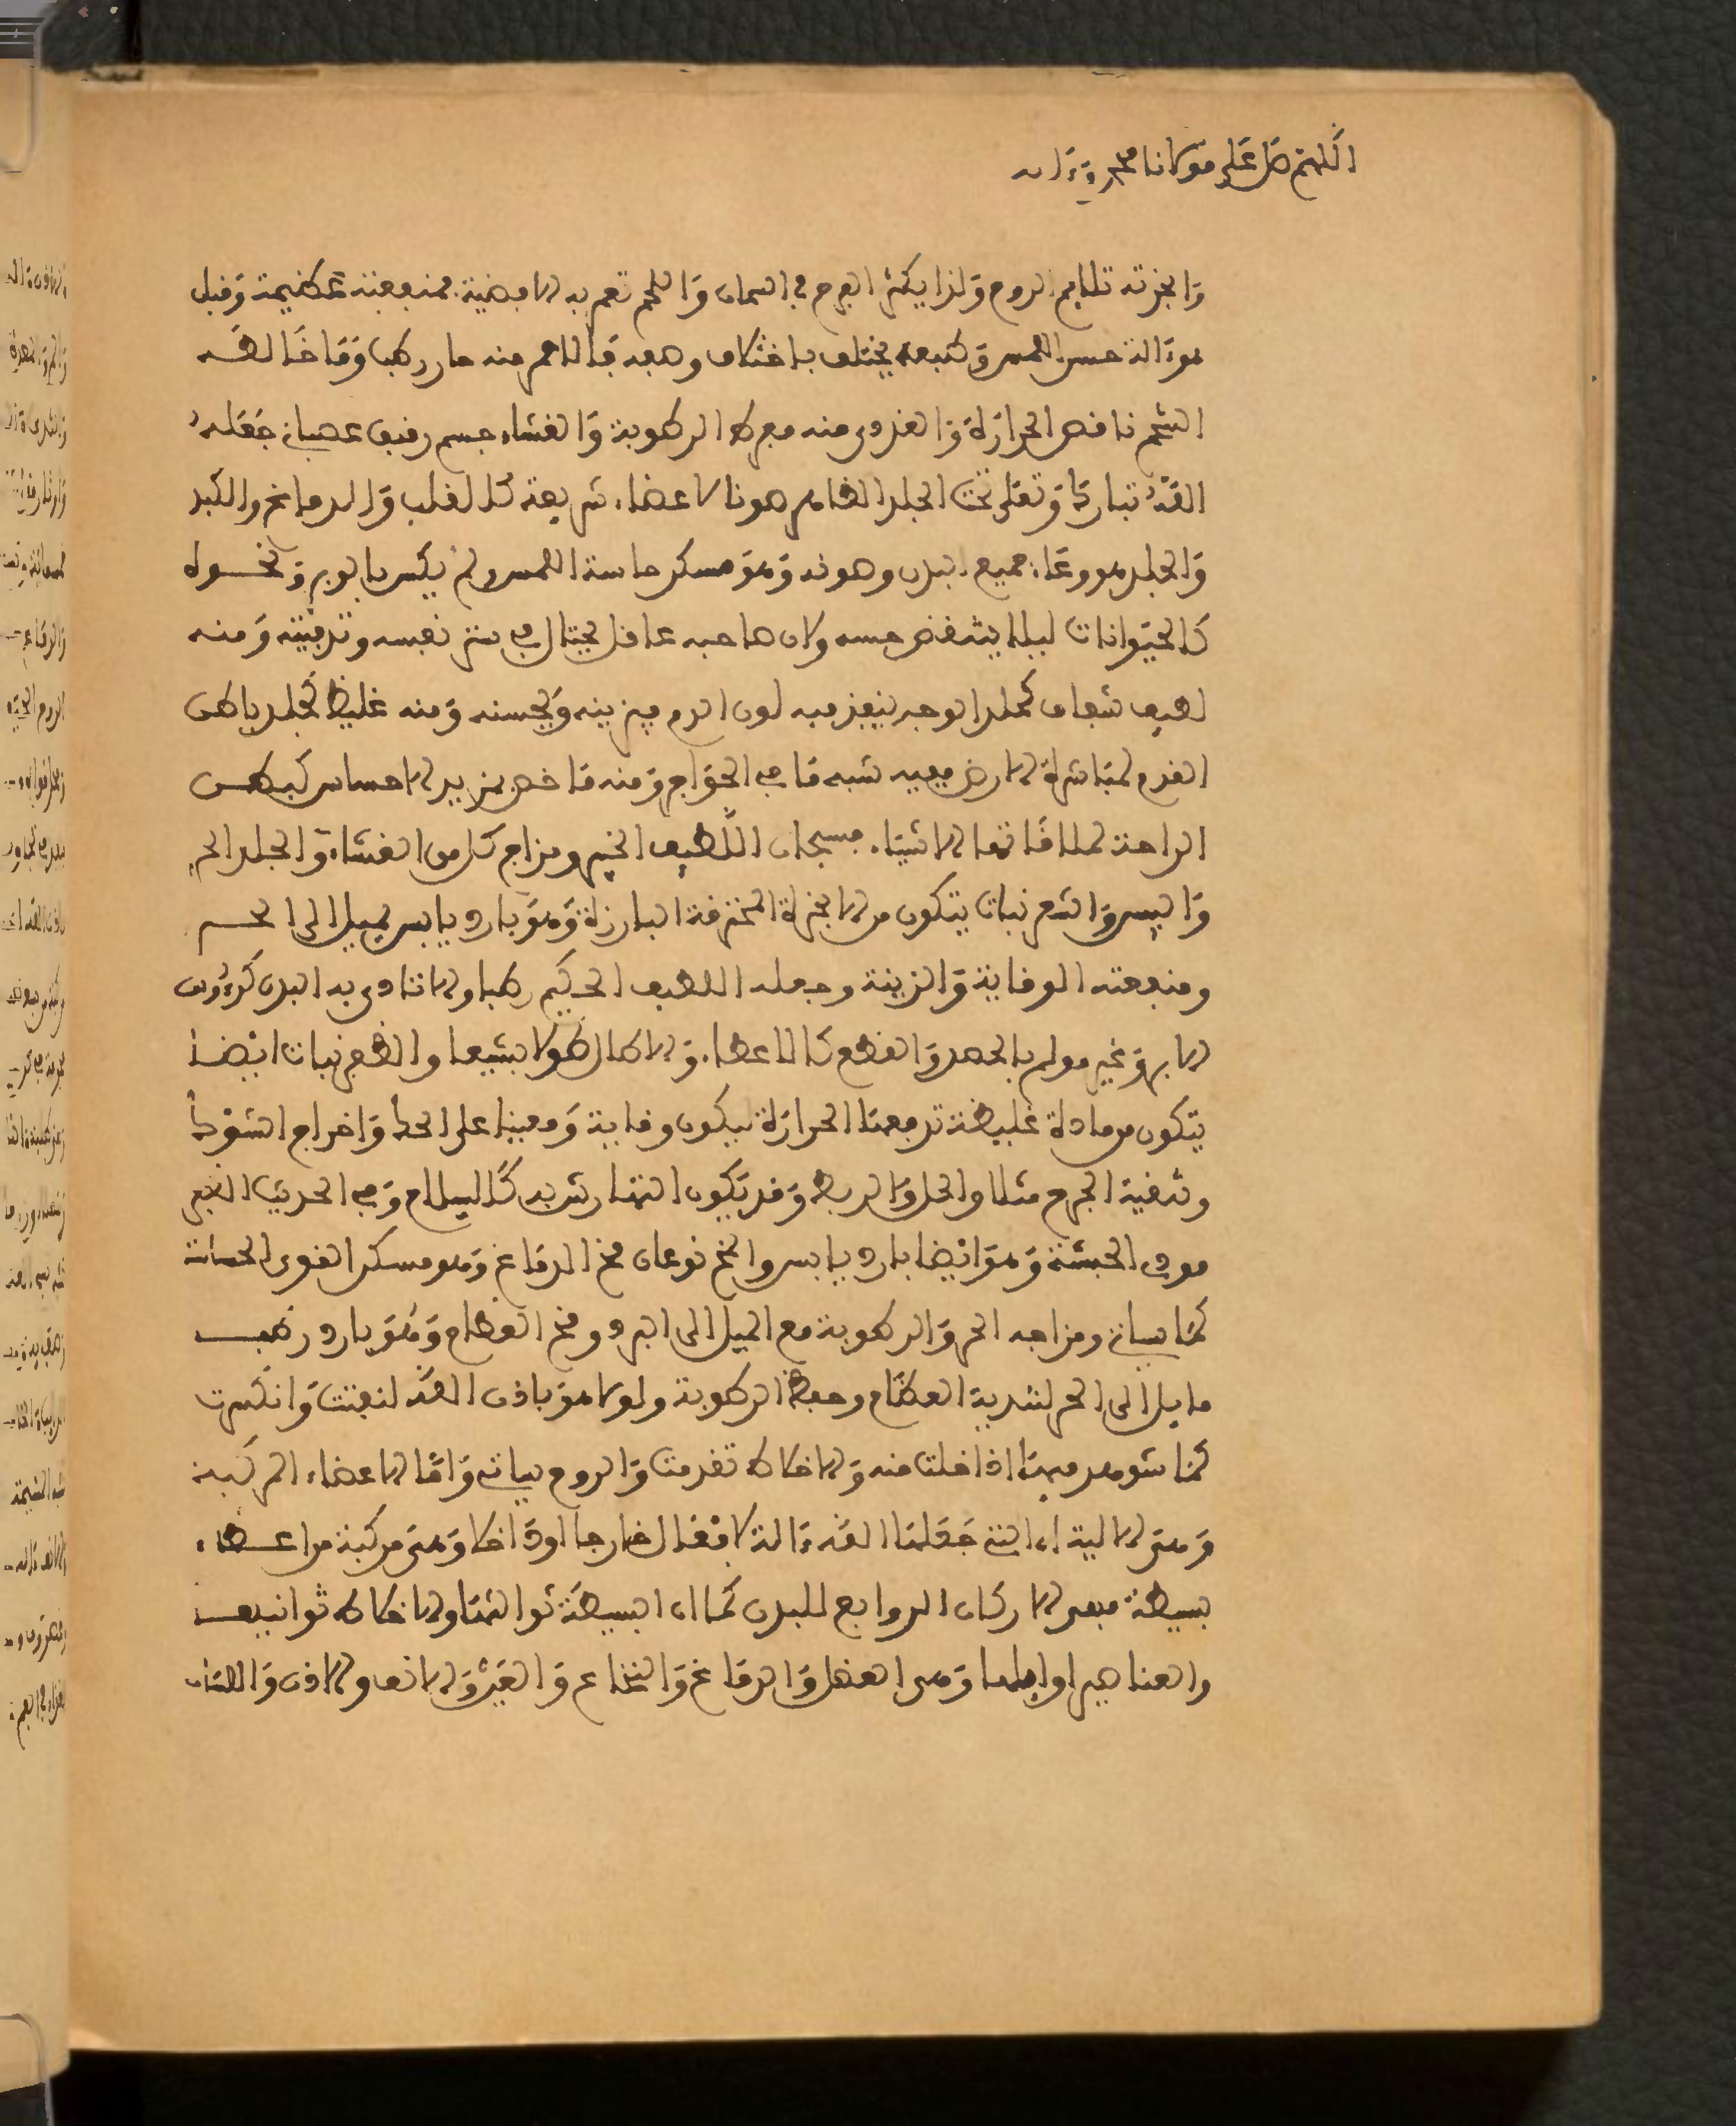 اللهم صل على مولانا محمد وءاله
وابخرته تلايم الروح ولذا يكثر الفرح في السمان واللحم تعم به الافضية فمنفعته عظيمة وقيل
هو ءالة حس اللمس وطبعه يختلف باختلاف وصفه فالاحمر منه حار رطب وما خالطه
الشحم ناقص الحرارة والغددى منه مفرط الرطوبة والغشاء جسم رقيق عصباني جعله
الله تبارك وتعلى تحت الجلد الظاهر صونا لاعضاء شريفة كالقلب والدماغ والكبد
والجلد هو وعاء جميع البدن وصونه وهو مسكن حاسة اللمس ولم يكس بالوبر ونحوه
كالحيوانات ليلا ينقص حسه ولان صاحبه عاقل يحتال في ستر نفسه وتدفيته ومنه
لطيف شفاف كجلد الوجه لينفذ فيه لون الدم فيزينه ويحسنه ومنه غليظ كجلد باطن
القدم لمباشرة الارض ففيه شبه ما في الحوافر ومنه ما خص بمزيد الاحساس كبطن
الراحة لملاقاتها الاشياء فسبحان اللطيف الخبير ومزاج كل من الغشاء والجلد الحر
واليبس والشعر نبات يتكون من الابخرة المحترقة البارزة وهو بارد يابس يميل الى الحر
ومنفعته الوقاية والزينة وجعله اللطيف الحكيم رطبا ولا تتاذى به البدن كرءوس
الابر وغير مولم بالحصد والقطع كالاعضا والا طال طولا بشيعا والظفر نبات ايضا
يتكون من مادة غليظة تدفعها الحرارة ليكون وقاية ومعينا على الحك واخراج الشوك
وتنقية الجرح مثلا والحل والربط وقد يكون انتصار شربه كالسلاح وفي الحديث الظفر
مدى الحبشة وهو ايضا بارد يابس والمخ نوعان مخ الدماغ وهو مسكن القوى الحساسة
كما سياتي ومزاجه الحر والرطوبة مع الميل الى البرد ومخ العظام وهو بارد رطب
مايل الى الحر لتغذية العظام وحفظ الرطوبة ولولا هو باذن الله لتفتت وانكسرت
كما شوهد فيها اذا خلت منه والاخلاط تقدمت والروح سياتي واما الاعضاء المركبة
وهى الالية اى التى جعلها الله ءالة لافعال خارجا او داخلا وهى مركبة من اعضاء
بسيطة فهى الاركان الروابع للبدن كما ان البسيطة ثوالثها والاخلاط ثوانيها
والعناصر اوايلها وهى العضل والدماغ والنخاع والعين والانف والاذن واللسان